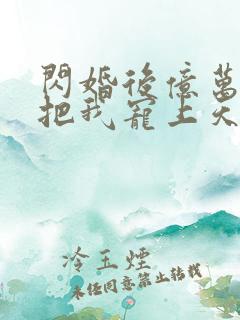 閃婚後億萬
把我寵上天
冷玉煙
未經同意禁止轉載